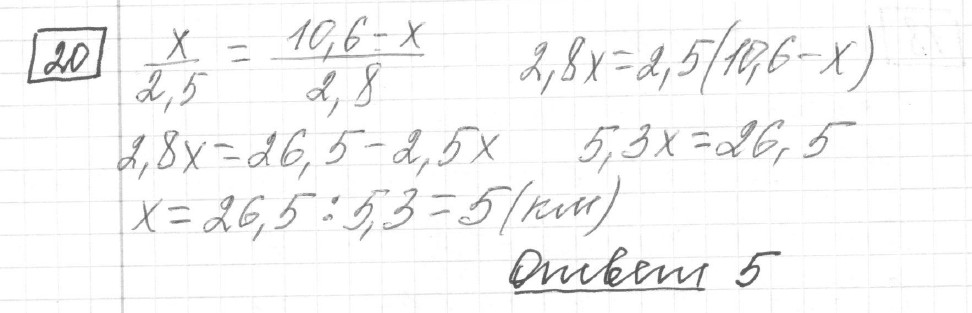 20 x/2,5 = 10,6-x/2,8 2,8x=2,5(10,6-x)
2,8x=26,5-2,5x 5,3x=26,5
x=26,5:5,3=5(км)
Ответ 5